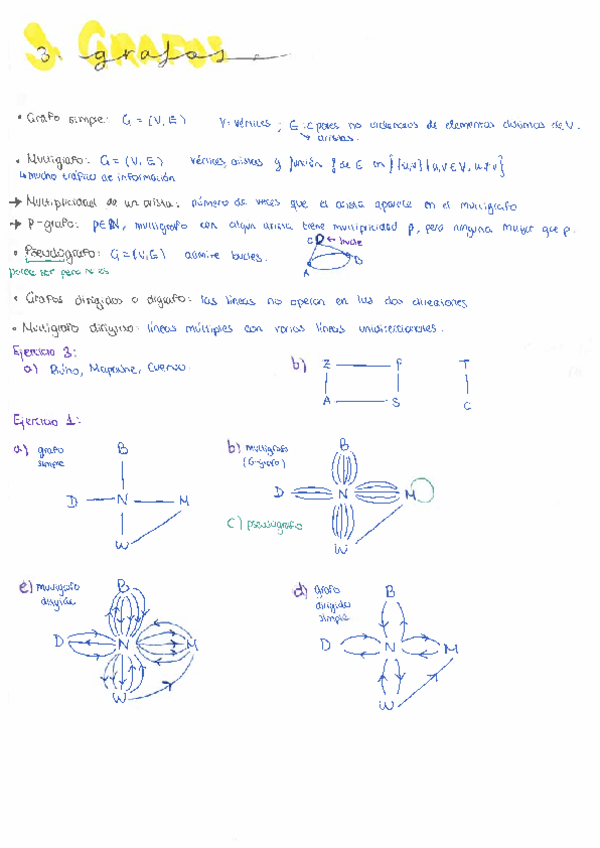 3. GRAFOS
3. grafos
• Grafo simple: G = (V, E) V = vértices ; E: pares no ordenados de elementos distintos de V.
↳ aristas.
• Multigrafo: G = (V, E) vértices, aristas y función f de E en {{u,v} | u,v ∈ V, u ≠ v}
↳ mucho tráfico de información
→ Multiplicidad de un arista: número de veces que el arista aparece en el multigrafo
→ P-grafo: p∈ℕ, multigrafo con algun arista tiene multiplicidad p, pero ninguna mayor que p.
• Pseudógrafo: G = (V, E) admite bucles.
C ← bucle
B
A
parece ser pero no es
• Grafos dirigidos o digrafo: las líneas no operan en las dos direcciones
• Multigrafo dirigido: líneas múltiples con varias líneas unidireccionales.
Ejercicio 3:
a) Rhino, Mapache, Cuervo.
b) Z F T
A S C
Ejercicio 1:
a) grafo simple
B
D N M
W
b) multigrafo
(6-grafo)
B
D N M
W
c) pseudografo
e) multigrafo
dirigido
B
D N M
W
d) grafo
dirigido
simple
B
D N M
W